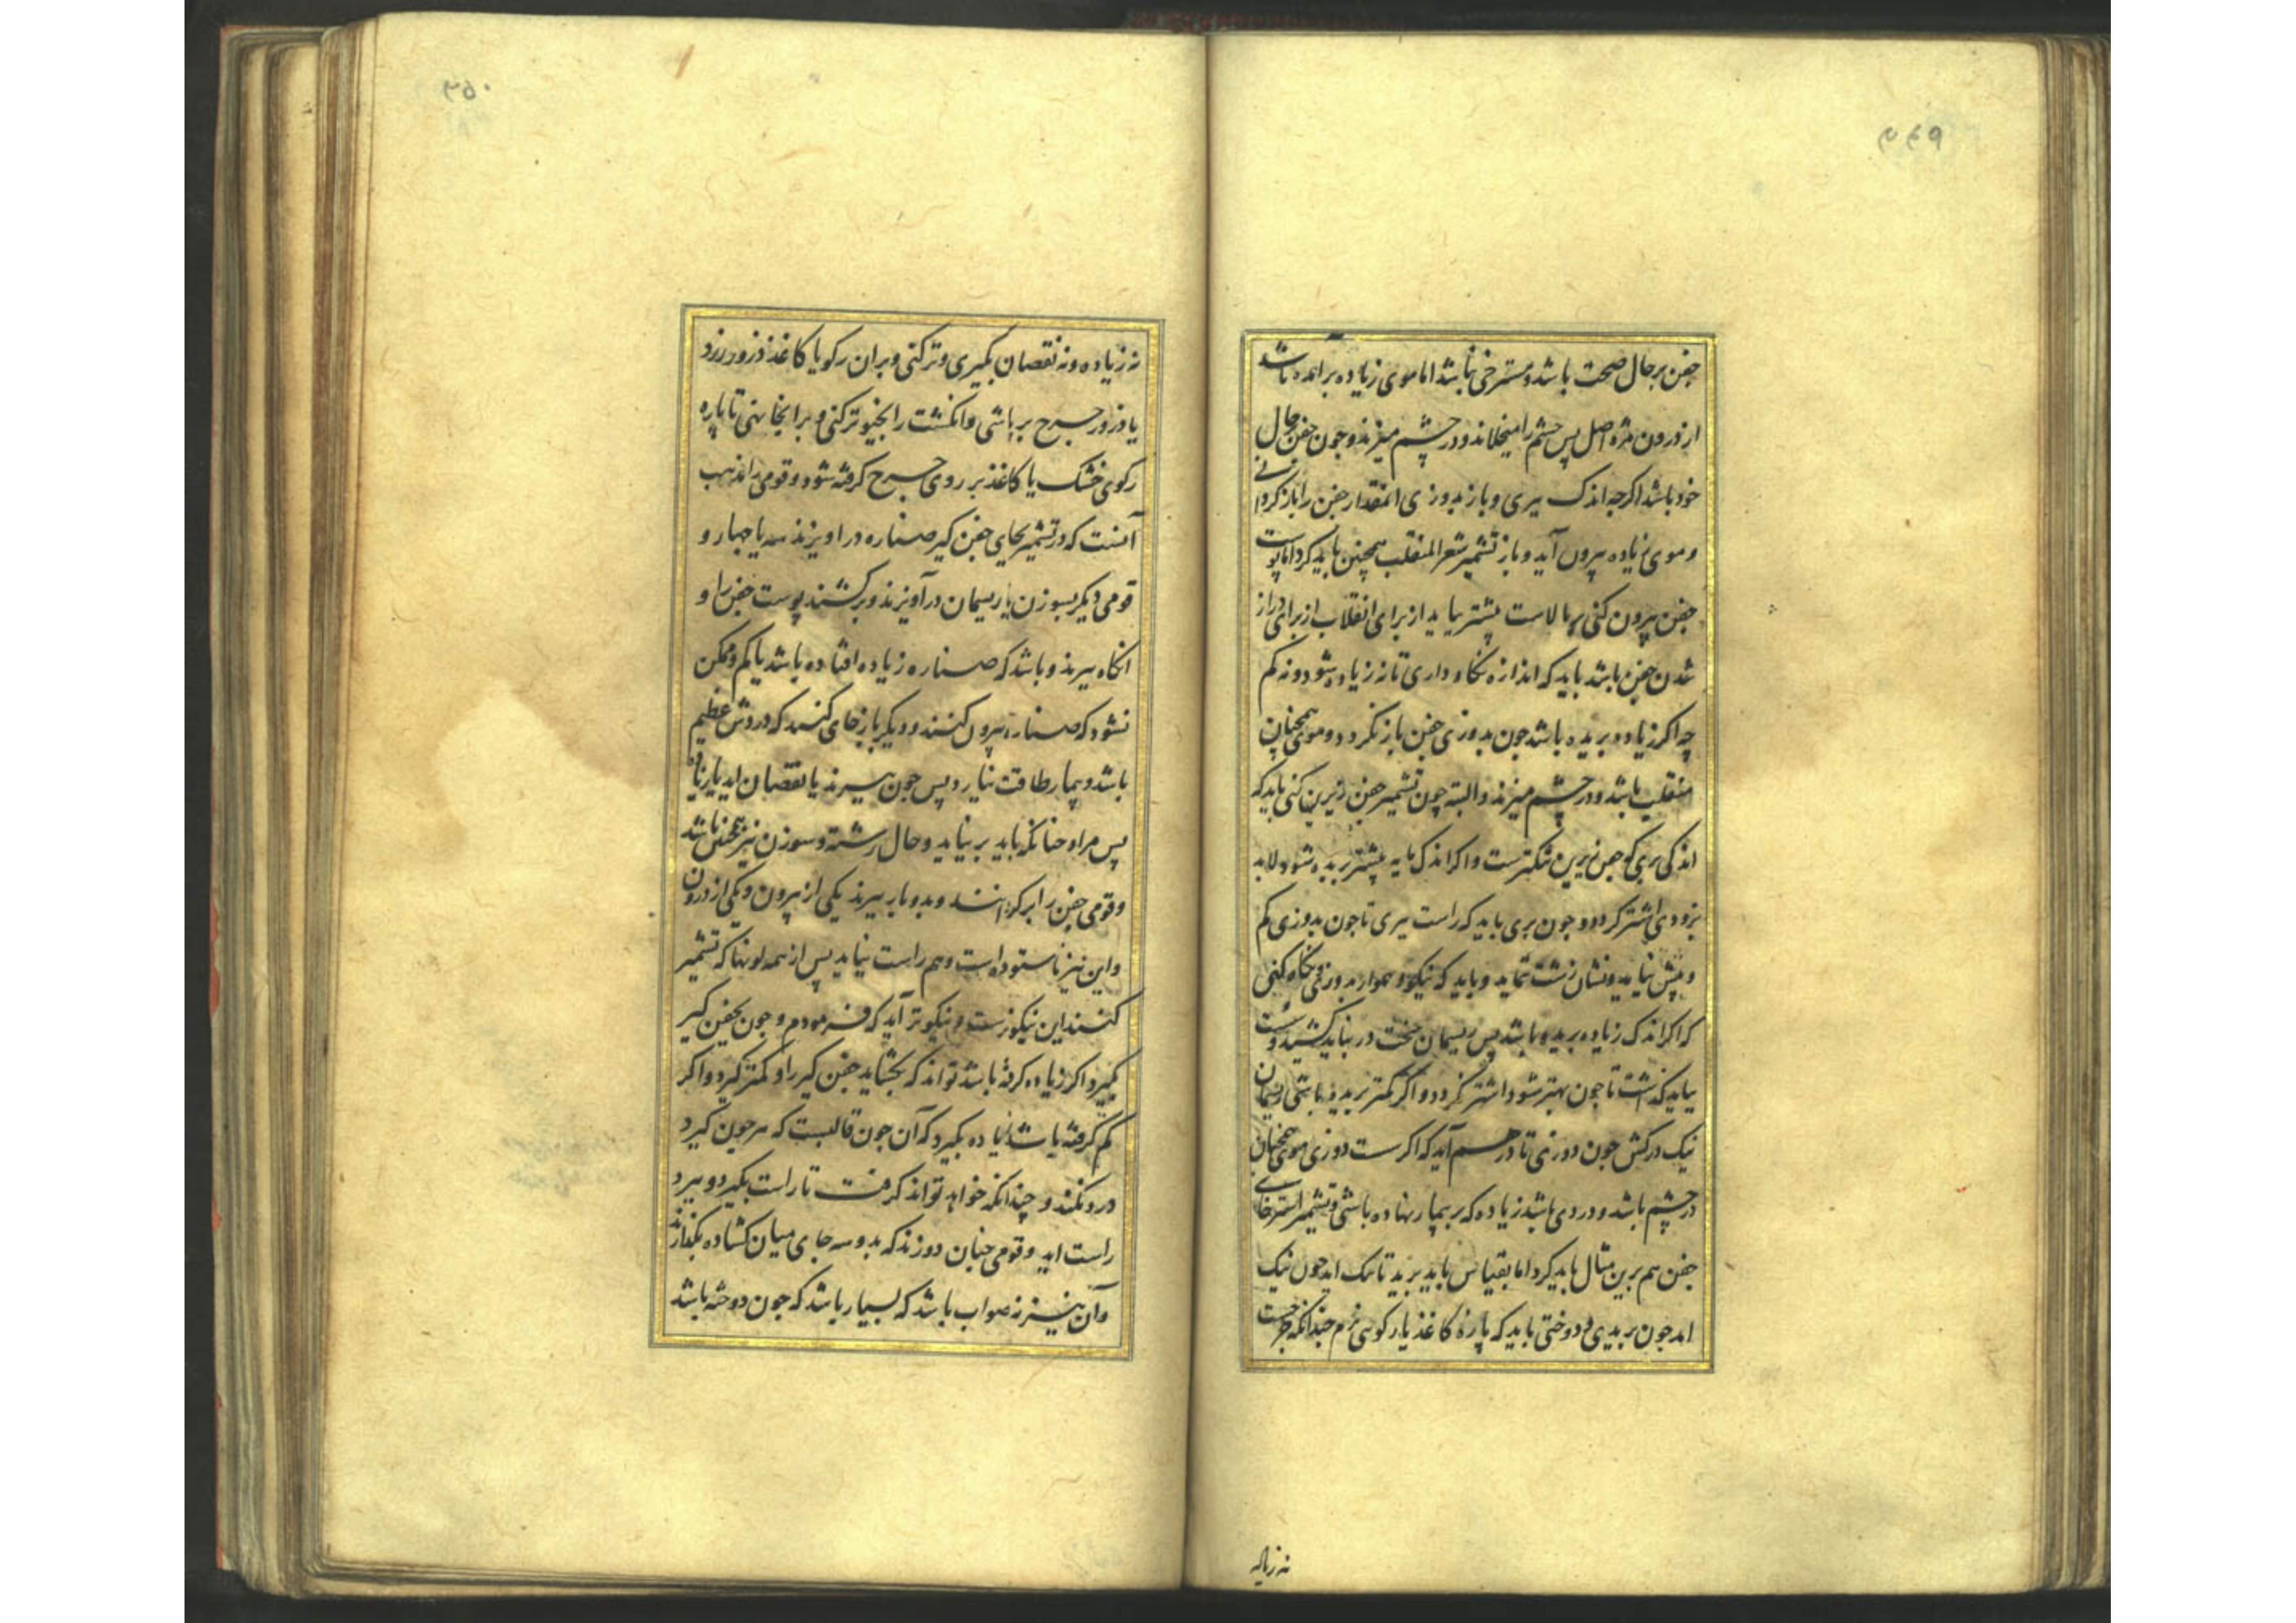 ۲۴۹
جفن بر حال صحت باشد و مسترخی نباشد اما موی زیاده برآمده باشد
از درون مژه اصل پس چشم را میخلاند و در چشم میزند و جون جفن بحال
خود باشد اکرچه اندک ببری و باز بدوزی انمقدار جفن را باز کردانی
و موی زیاده بیرون آید و باز تشمیر شعر المنقلب همچنین باید کرد اما پوست
جفن بیرون کنی بالاست پیشتر باید از برای انقلاب از برای دراز
شدن جفن باشد باید که اندازه نکاه داری تا نه زیاده شود و نه کم
چه اکر زیاده بریده باشد جون بدوزی جفن باز نکردد و موی همچنان
منقلب باشد و در چشم میزند و البته چون تشمیر جفن زیرین کنی باید که
اندکی بری که جفن زیرین تنکترست و اکر اندک مایه پیشتر بریده شود لابد
بزودی اشتر کردد و جون بری باید که راست ببری تا جون بدوزی کم
و بیش نیاید و نشان زشت نماید و باید که نیکو و هموار بدوزی و نکاه کنی
که اکر اندک زیاده بریده باشد پس ریسمان سخت در نباید کشید و سست
بباید کذاشت تا جون بهتر شود اشتر نکردد و اکر کمتر بریده باشی ریسمان
نیک در کش جون دوزی تا در هم آید که اکر سست دوزی موی همچنان
در چشم باشد و دردی باشد زیاده که بر بیمار نهاده باشی و تشمیر استرخای
جفن هم برین مثال باید کرد اما بقیاس باید برید تا نیک اید جون نیک
اید جون بریدی و دوختی باید که پاره کاغذ یا رکوی نرم چندانکه جراحت
نه زیاده
۲۵۰
نه زیاده و نه نقصان بکیری و تر کنی و بران رکو یا کاغذ ذرور زرد
یا ذرور جرح برپاشی و انکشت را بخیو تر کنی و بر انجا نهی تا پاره
رکوی خشک یا کاغذ بر روی جرح کرفته شود و قومی را مذهب
آنست که در تشمیر بجای جفن کیر صناره در اویزند سه یا چهار و
قومی دیکر بسوزن یا ریسمان در آویزند و برکشند پوست جفن را و
انکاه ببرند و باشد که صناره زیاده افتاده باشد یا کم و ممکن
نشود که صناره بیرون کنند و دیکر باز جای کنند که دردش عظیم
باشد و بیمار طاقت نیارد پس جون ببرند یا نقصان اید یا زیاده
پس مراد چنانکه باید بر نیاید و حال رشته و سوزن نیز همچنین باشد
و قومی جفن را بر کردانند و بدو بار ببرند یکی از بیرون و یکی از درون
و این نیز ناستوده است و هم راست نیاید پس از همه لونها که تشمیر
کنند این نیکوترست و نیکوتر آید که فرمودم و جون بجفن کیر
کیرد اکر زیاده کرفته باشد تواند که بکشاید جفن کیر را و کمتر کیرد و اکر
کم کرفته باشد زیاده بکیرد که آن جون قالبست که هر جون کیرد
درد نکند و چندانکه خواهد تواند کرفت تا راست بکیرد و ببرد
راست اید و قومی چنان دوزند که بدو سه جای میان کشاده بکذارند
و آن نیز نه صواب باشد که بسیار باشد که جون دوخته باشد